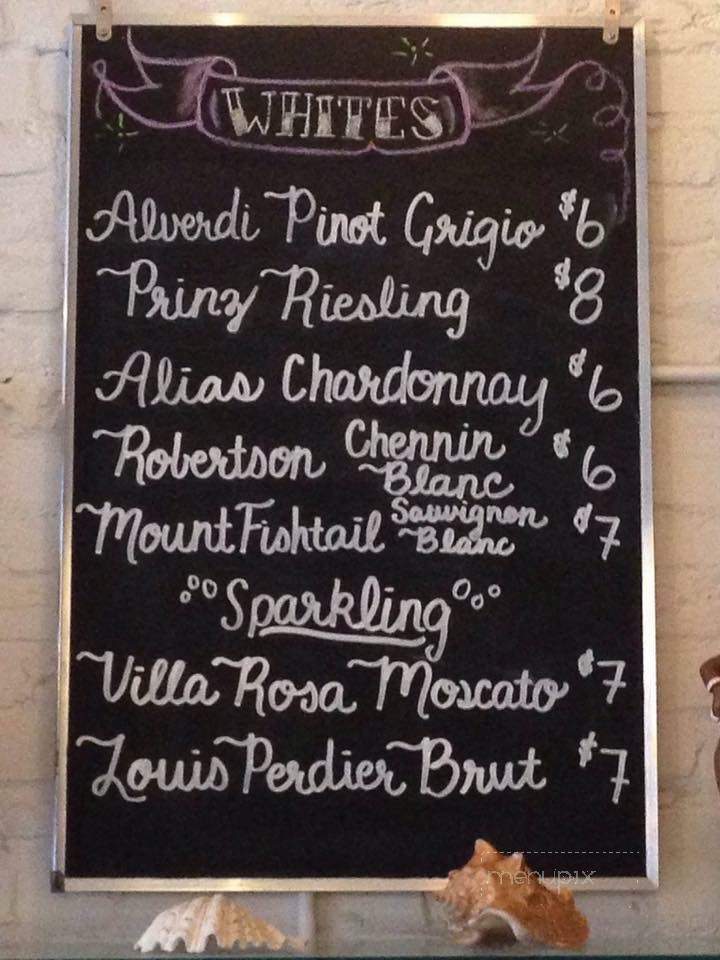 WHITES
Alverdi Pinot Grigio $6
Prinz Riesling $8
Alias Chardonnay $6
Robertson Chennin Blanc $6
Mount Fishtail Sauvignon Blanc $7
Sparkling
Villa Rosa Moscato $7
Louis Perdier Brut $7
menupix